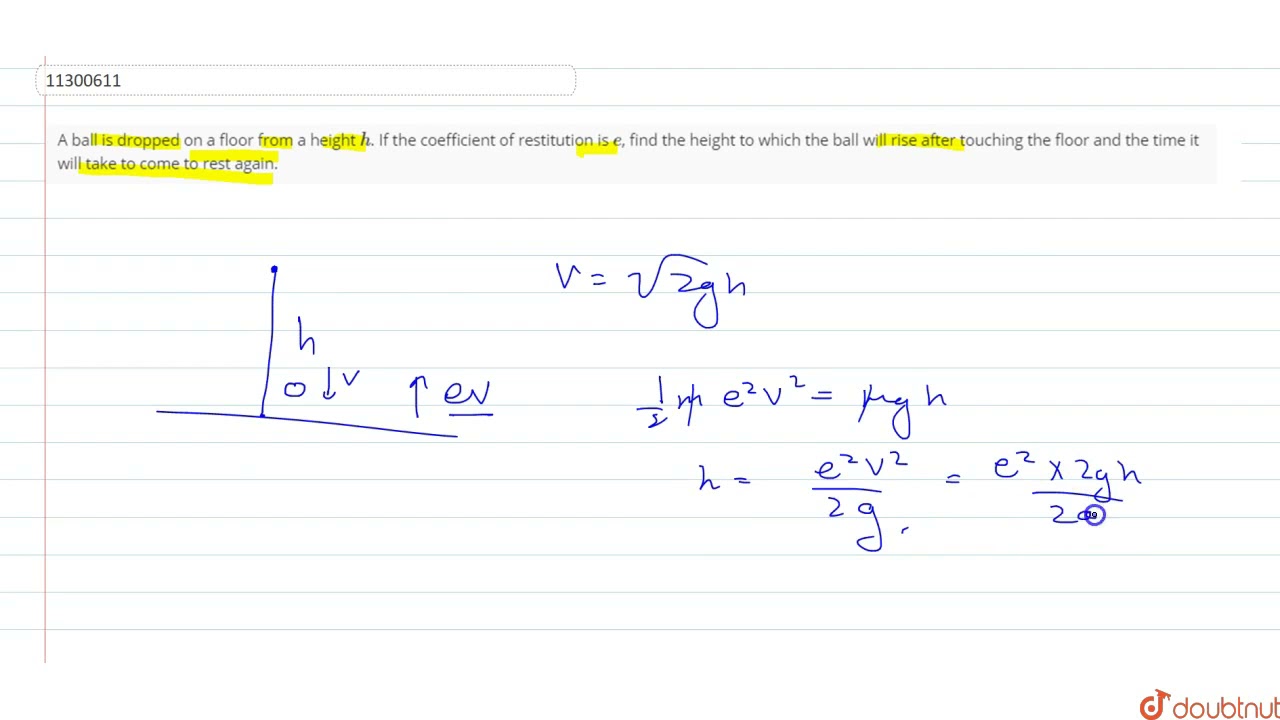 11300611
A ball is dropped on a floor from a height h. If the coefficient of restitution is e, find the height to which the ball will rise after touching the floor and the time it
will take to come to rest again.
v = √2gh
h
↓ v ↑ ev
1/2 m e²v² = mgh
h = e²v²/2g = e² × 2gh/2
doubtnut